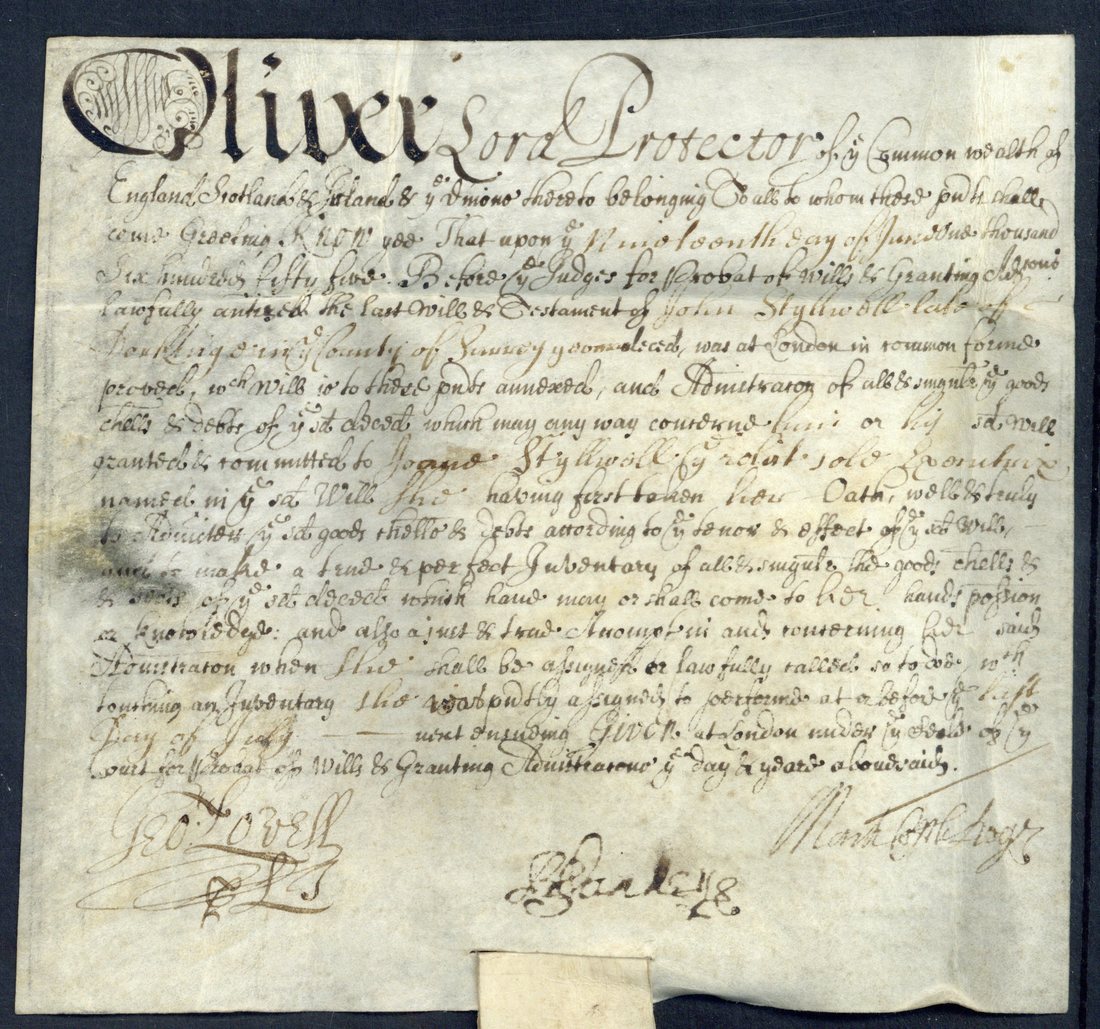 Oliver Lord Protector of ye Common wealth of
England Scotland & Ireland & ye Dmions thereto belonging To all to whom these pnts shall
come Greeting, Know yee That upon ye Nineteenth day of June one thousand
Six hundred fifty five Before ye Judges for Probat of Wills & Granting Adcons
lawfully the last Will & Testament of John Styllwell late of
Dorkinge in ye County of Surrey deced, was at London in common forme
proved, wch Will is to these pnts annexed, and Admstracon of all & singuler ye goods
chells & debts of ye sd deced which may any way concerne him or his sd Will
granted & committed to Joane Styllwell ye relict sole Executrix
named in ye sd Will she having first taken her Oath, well & truly
to Admister ye sd goods chells & debts according to ye tenor & effect of ye sd Will,
and to make a true & perfect Inventary of all & singuler the goods chells &
& debts of ye sd deced which have may or shall come to her hands possion
or knowledge: and also a just & true Accompt in and concerning her said
Admstracon when she shall be assigned or lawfully called so to doe, wch
touching an Inventary she was pntly assigned to performe at or before ye last
Day of July next ensueing Given at London under ye Seale of ye
Court for Probat of Wills & Granting Admstracons ye day & yeare abovesaid.
Geo: Lovell
Mark Cottle Regr